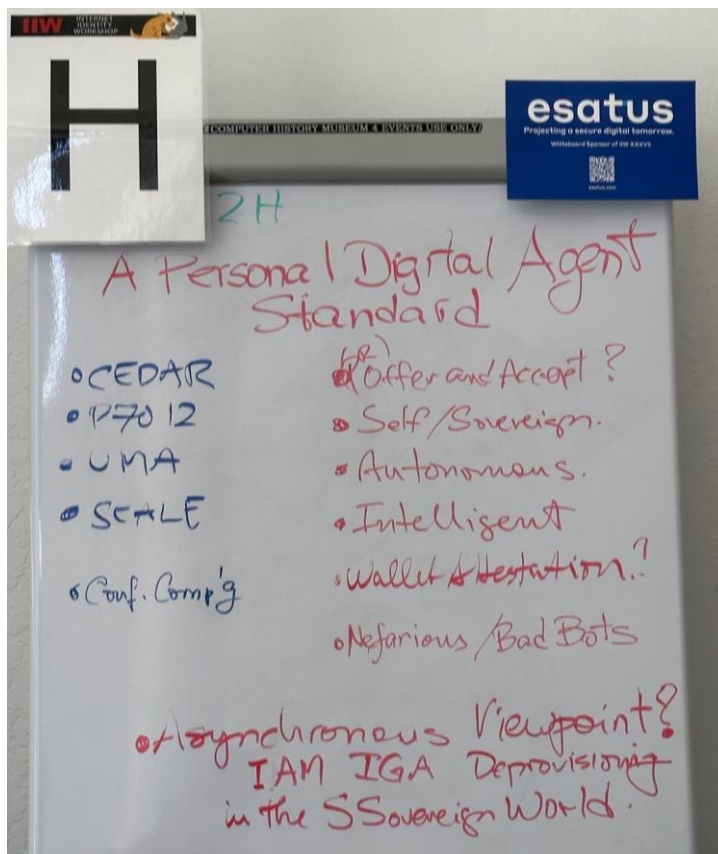 IIW INTERNET IDENTITY WORKSHOP
H
COMPUTER HISTORY MUSEUM 4 EVENTS USE ONLY/
esatus
Projecting a secure digital tomorrow.
Whiteboard Sponsor of IIW XXXVII
esatus.com
2H
A Personal Digital Agent
Standard
• CEDAR
• P7012
• UMA
• SCALE
• Conf. Comp'g
Offer and Accept?
• Self/Sovereign.
• Autonomous.
• Intelligent
• Wallet Attestation.?
• Nefarious/Bad Bots
• Asynchronous Viewpoint?
IAM IGA Deprovisioning
in the SSovereign World.